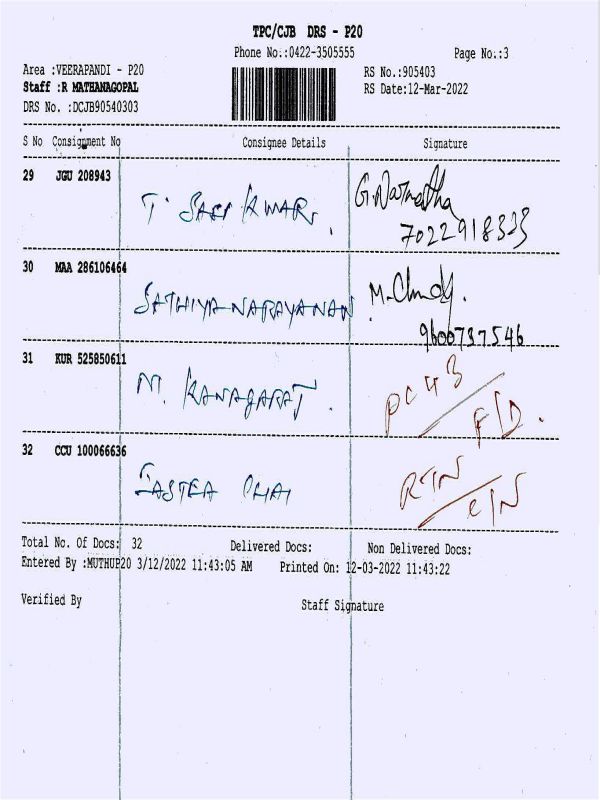 TPC/CJB DRS - P20
Phone No.:0422-3505555 Page No.:3
Area :VEERAPANDI - P20 RS No.:905403
Staff :R MATHANAGOPAL RS Date:12-Mar-2022
DRS No. :DCJB90540303
S No Consignment No Consignee Details Signature
29 JGU 208943
T. SASI KUMAR. G.
7022918333
30 MAA 286106464
SATHIYANARAYANAN M.
9600737546
31 KUR 525850611
M. KANAGARAJ. PC 43
F/D.
32 CCU 100066636
EASTEA CHAI RTN
C/N
Total No. Of Docs: 32 Delivered Docs: Non Delivered Docs:
Entered By :MUTHUP20 3/12/2022 11:43:05 AM Printed On: 12-03-2022 11:43:22
Verified By Staff Signature